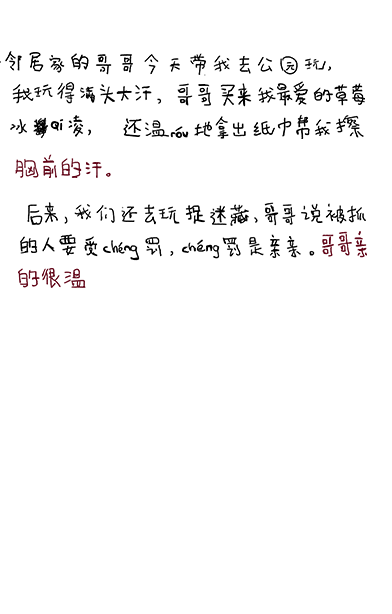 邻居家的哥哥今天带我去公园玩，
我玩得满头大汗，哥哥买来我最爱的草莓
冰qi凌，还温róu地拿出纸巾帮我擦
胸前的汗。
后来，我们还去玩捉迷藏，哥哥说被抓
的人要受chéng罚，chéng罚是亲亲。哥哥亲
的很温